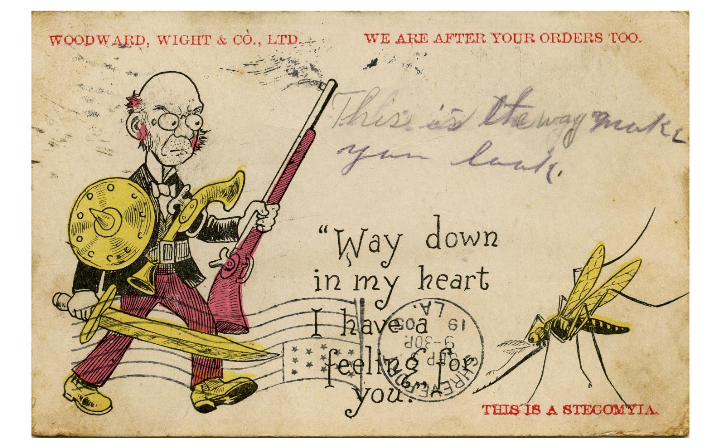 WOODWARD, WIGHT & CO., LTD.
WE ARE AFTER YOUR ORDERS TOO.
This is the way make
you look.
"Way down
in my heart
I have a
feeling for
you."
SHREVEPORT
LA.
SEP
9-30P
19 05
THIS IS A STEGOMYIA.